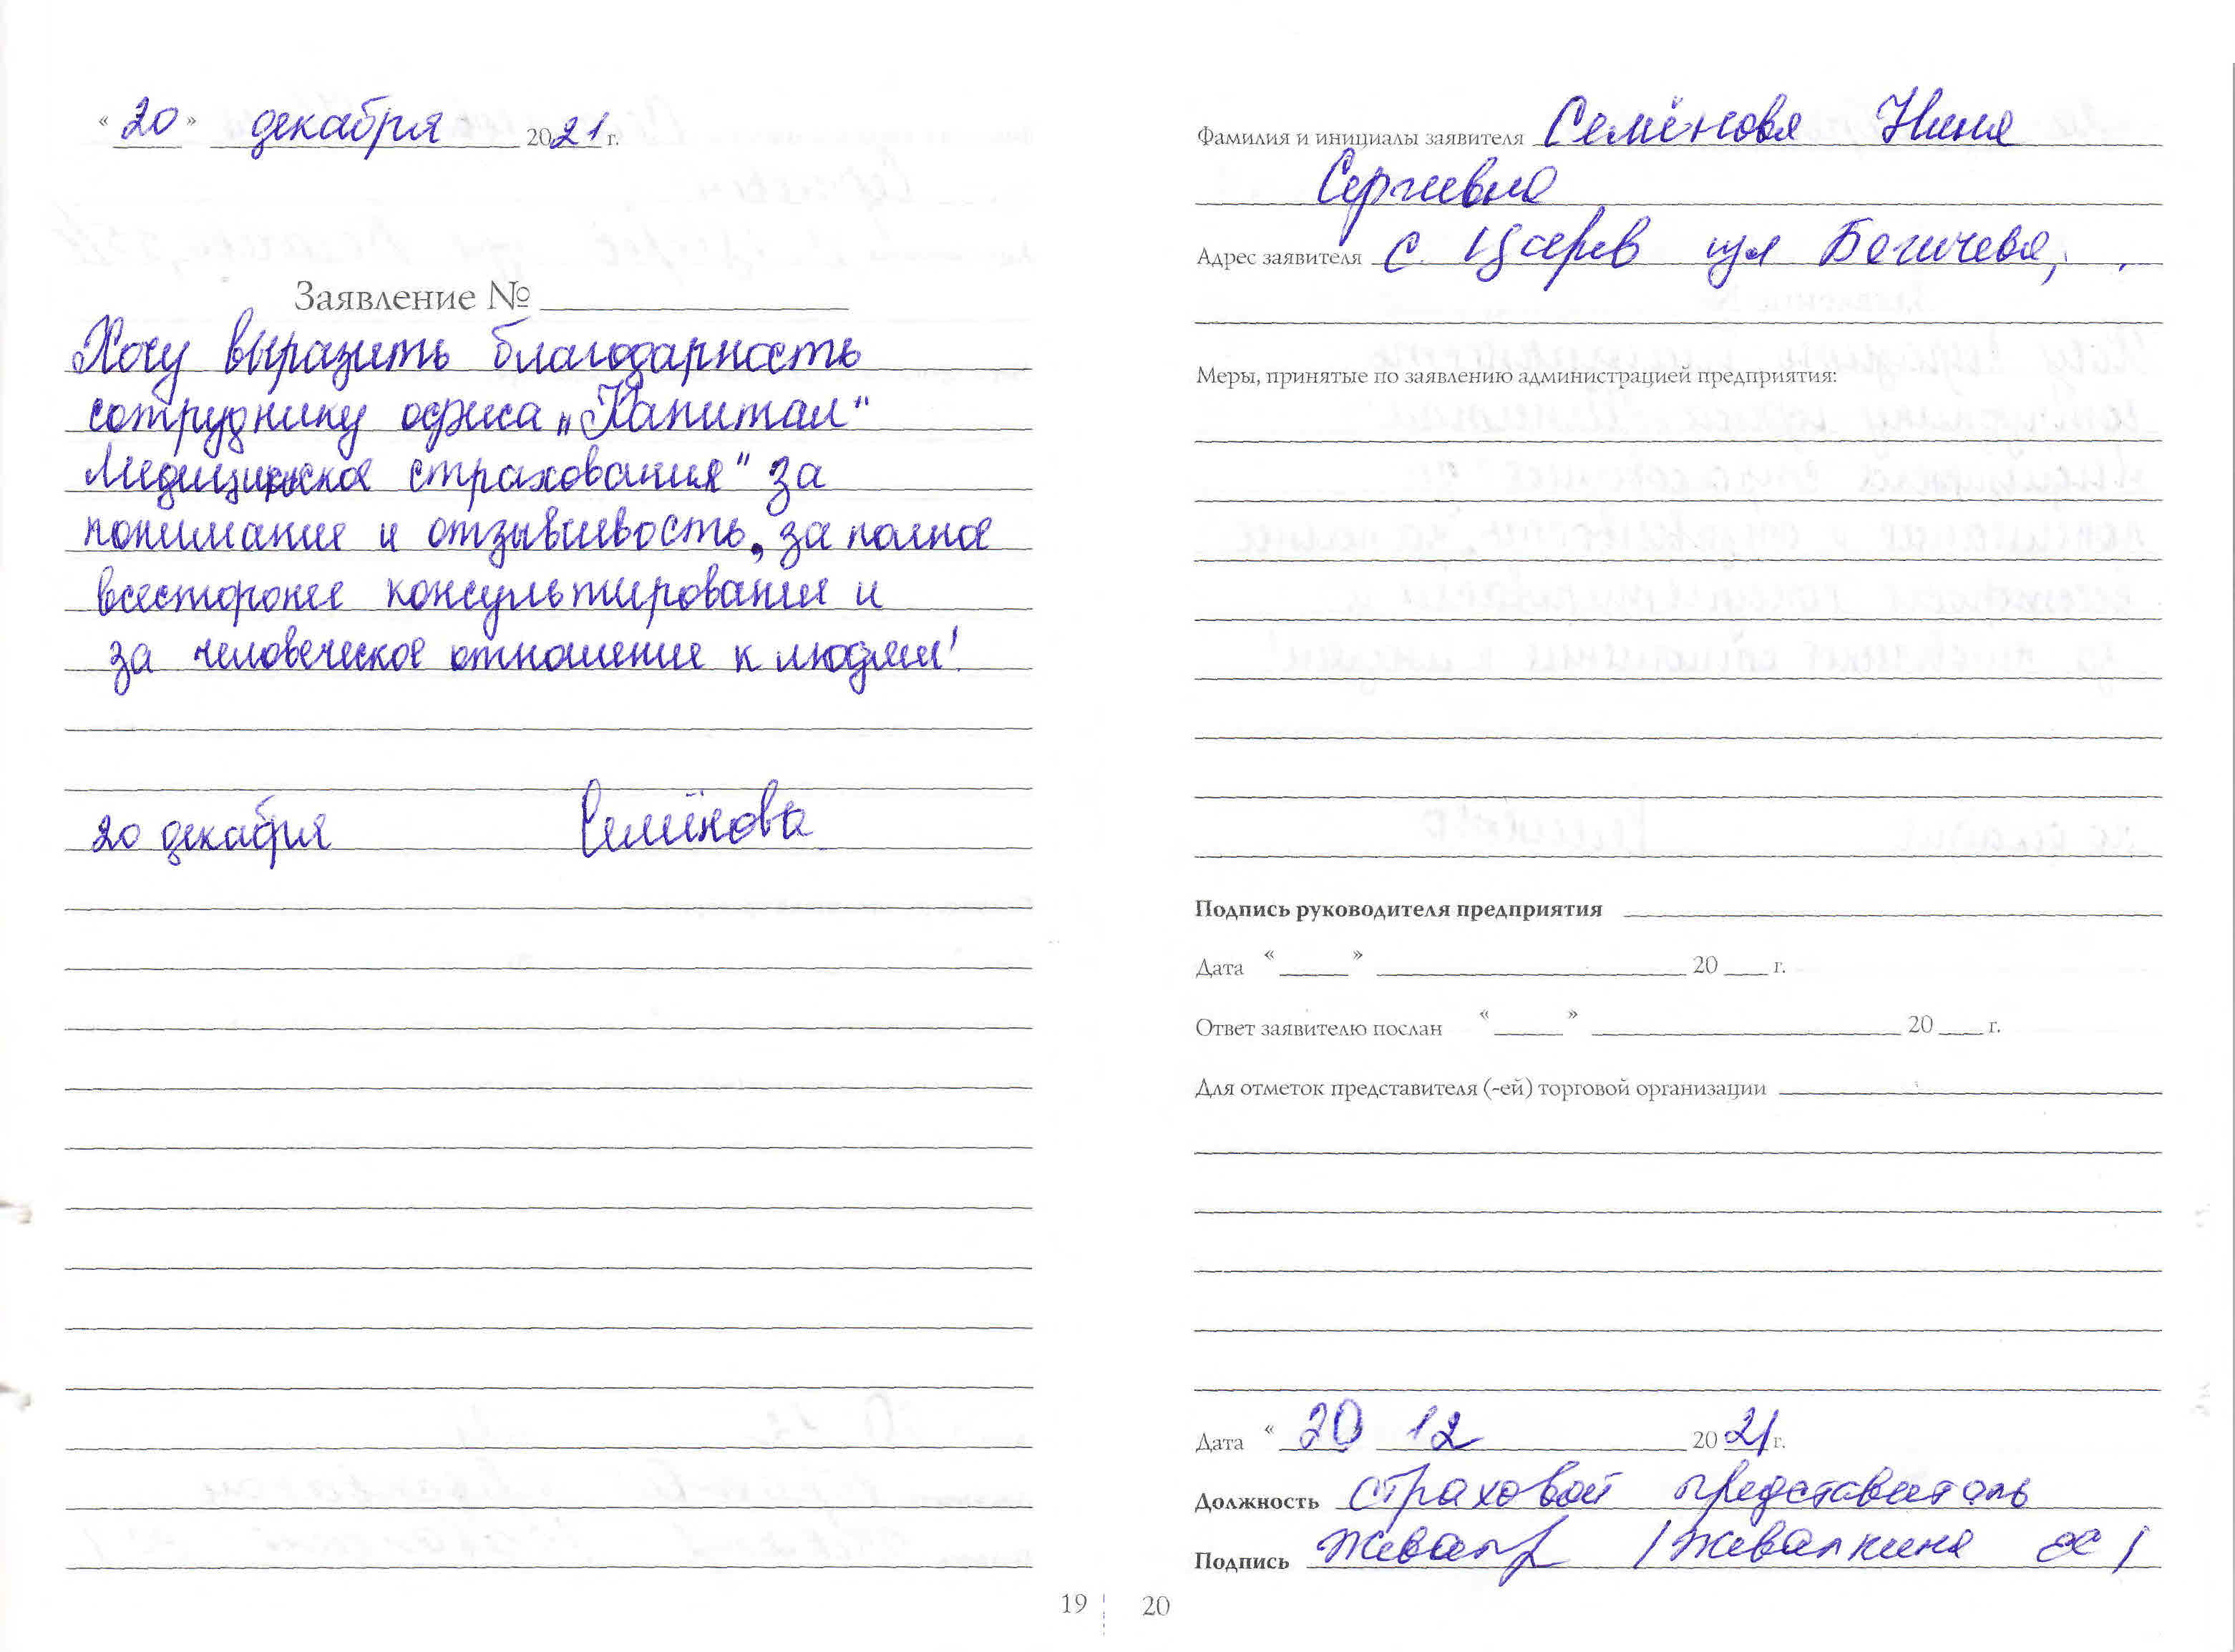 « 20 » декабря 2021 г.
Заявление №
Хочу выразить благодарность
сотруднику офиса „Капитал"
Медицинское страхования" за
понимание и отзывчивость, за полное
всесторонее консультирование и
за человеческое отношение к людям!
20 декабря Семёнова
19
Фамилия и инициалы заявителя Семёнова Нина
Сергеевна
Адрес заявителя с Царев ул Бегичева,
Меры, принятые по заявлению администрацией предприятия:
Подпись руководителя предприятия
Дата « » 20 г.
Ответ заявителю послан « » 20 г.
Для отметок представителя (-ей) торговой организации
Дата « 20 12 2021 г.
Должность страховой представитель
Подпись /Живалкина
20